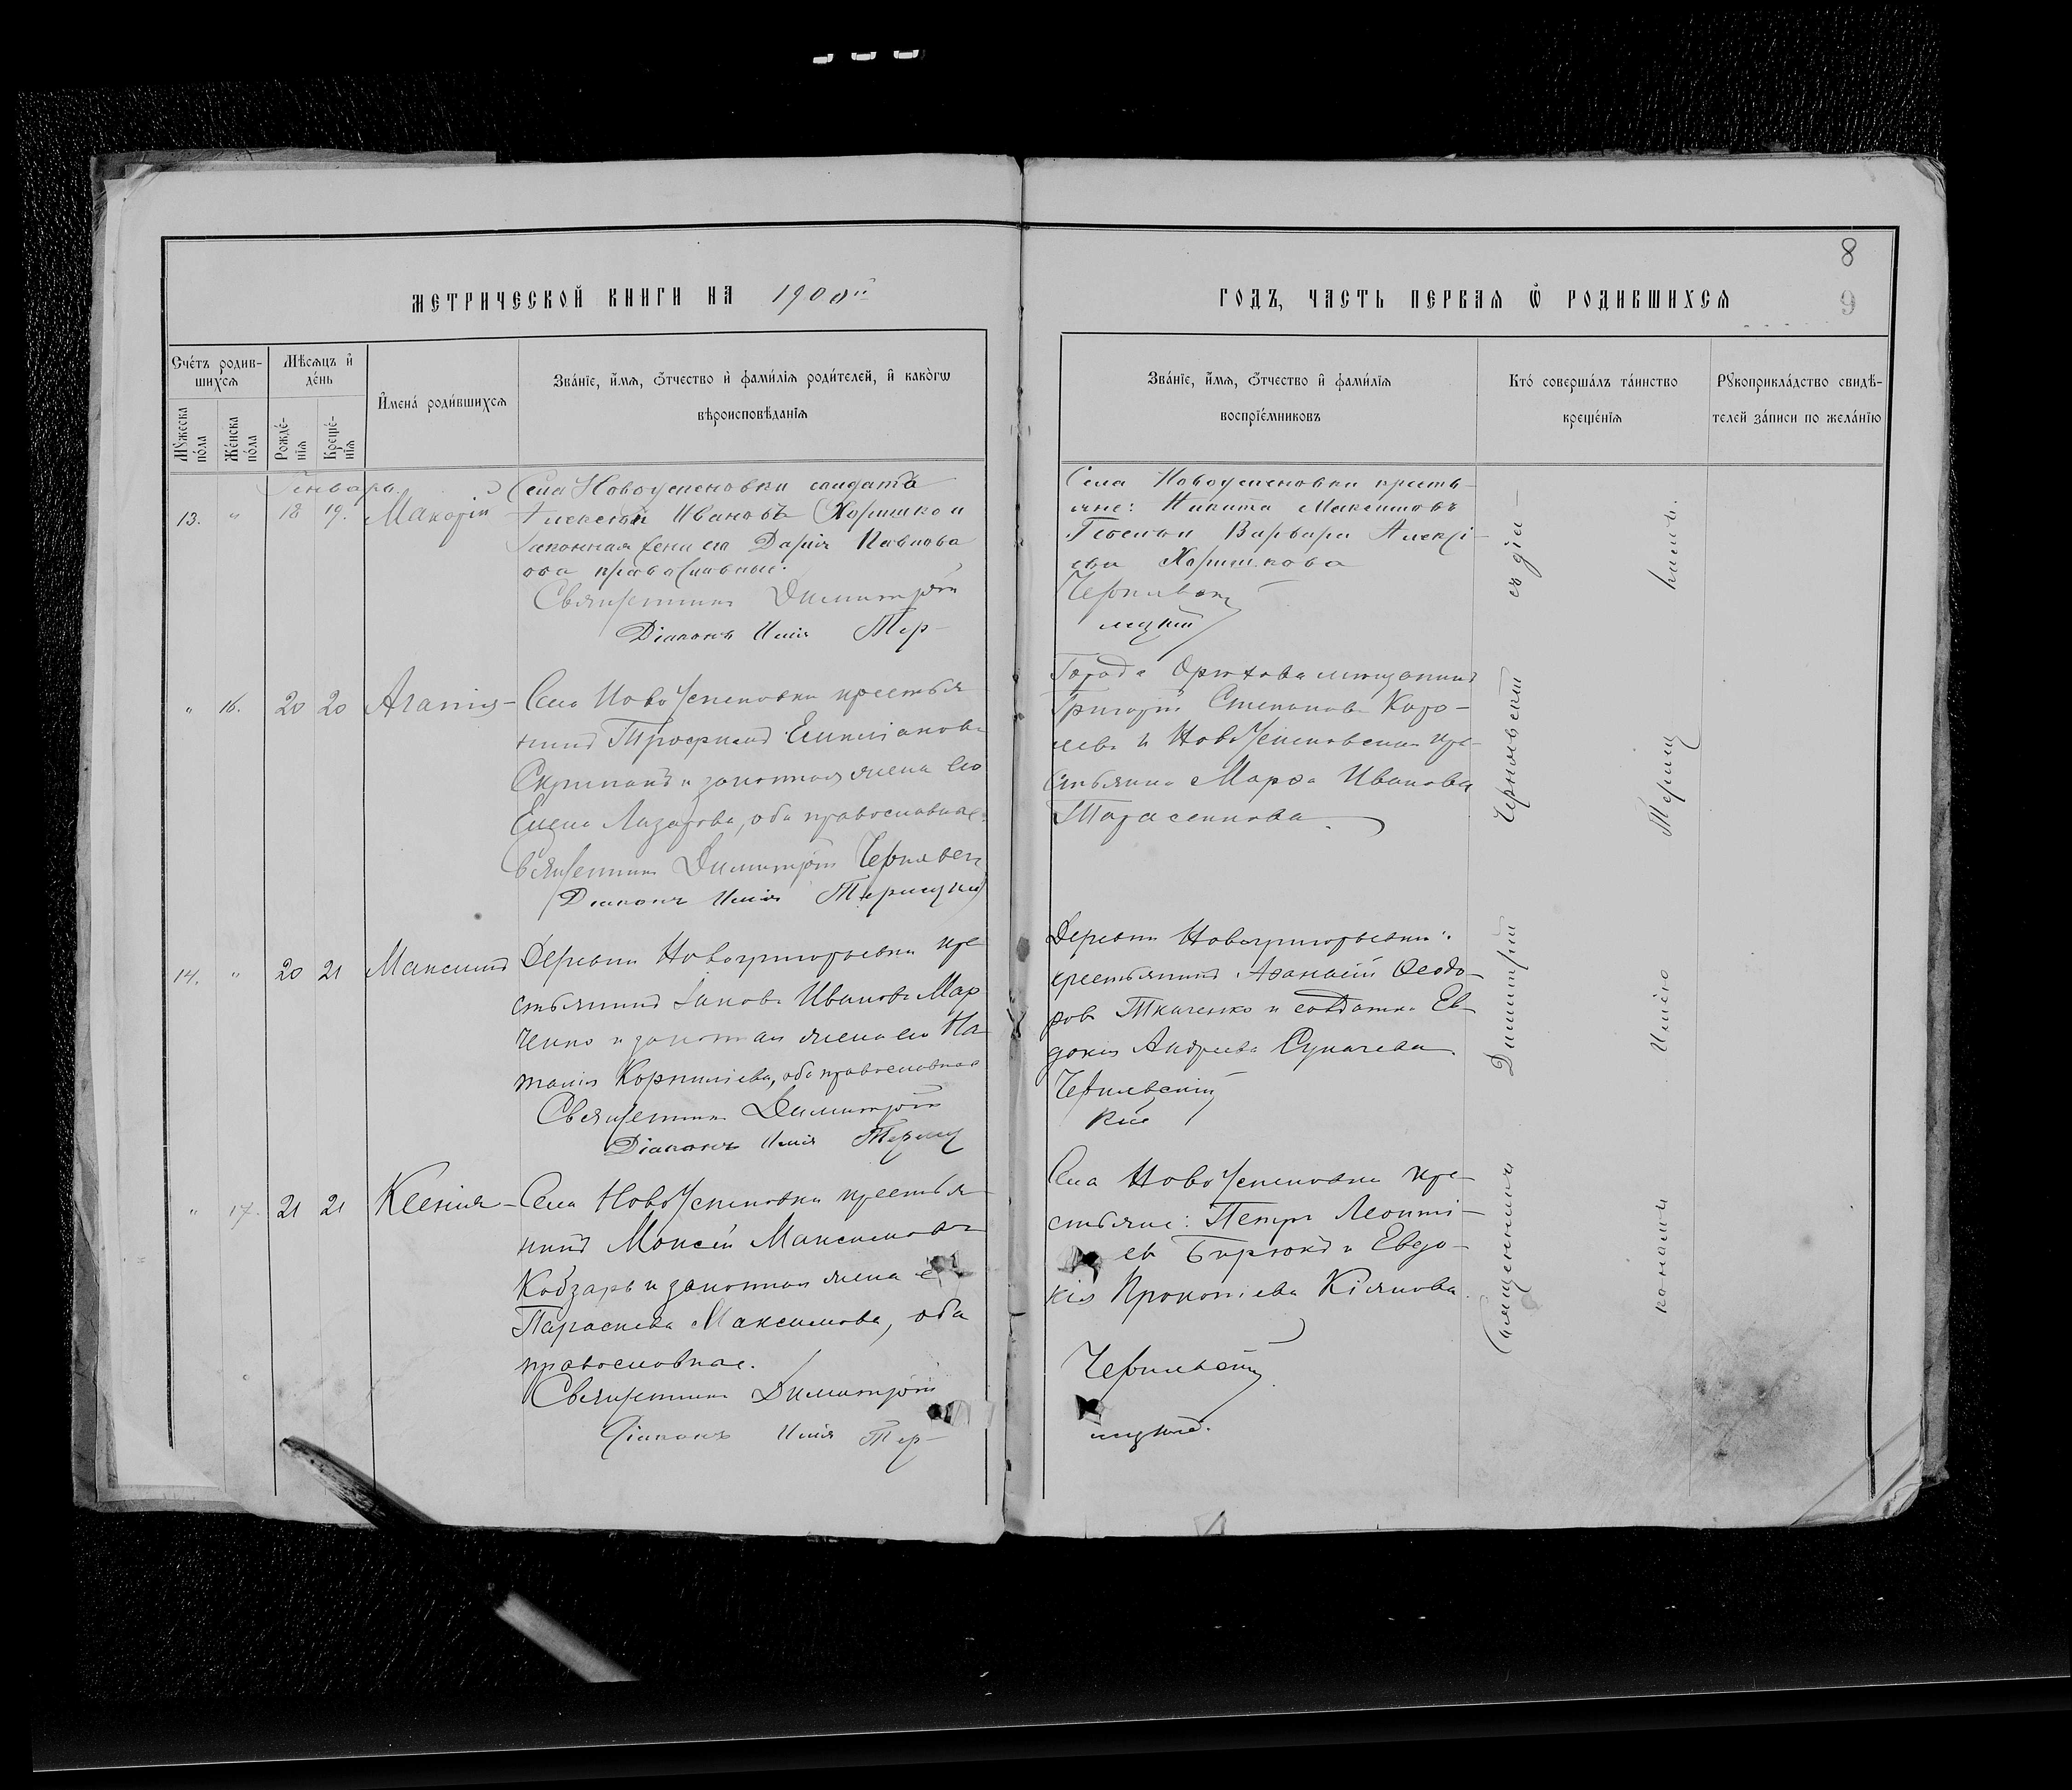 8
9
МЕТРИЧЕСКОЙ КНИГИ НА 1900й
ГОДЪ, ЧАСТЬ ПЕРВАЯ Ѿ РОДИВШИХСЯ
Счётъ родив-
шихся
Мѣсяцъ и
день
Имена родившихся
Званіе, имя, отчество и фамилія родителей, и какогѡ
вѣроисповѣданія
Мужеска пола
Женска пола
Рожде-
нія
Креще-
нія
Званіе, имя, отчество и фамилія
воспріемниковъ
Кто совершалъ таинство
крещенія
Рукоприкладство свидѣ-
телей записи по желанію
Январь
13. " 18 19. Макарій
Села Новоуспеновки солдатъ
Алексѣй Ивановъ Хоришко и
законная жена его Дарія Павлова
оба православные.
Священникъ Димитрій
Діаконъ Илія Тер-
Села Новоуспеновки кресть-
яне: Никита Максимовъ
Варвара Алексі-
ева Хоришкова
Чернявскій
лецкій
" 16. 20 20 Агапія
Села НовоУспеновки крестья
нинъ Трофимъ Емиліановъ
Скрипакъ и законная жена его
Елена Лазарева, оба православные.
Священникъ Димитрій Чернявскій
Діаконъ Илія Терлецкій
Города Орѣхова мѣщанинъ
Григорій Степановъ Коро-
левъ и НовоУспеновская кре-
стьянка Марѳа Иванова
Тарасенкова
14. " 20 21 Максимъ
Деревни Новогригорьевки кре
стьянинъ Іаковъ Ивановъ Мар
ченко и законная жена его На
талія Корниліева, оба православные
Священникъ Димитрій
Діаконъ Илія Терлец
Деревни Новогригорьевки:
крестьянинъ Аѳанасій Ѳеодо-
ровъ Ткаченко и солдатка Ев-
докія Андреева Сукачева
Чернявскій
кій
" 17. 21 21 Ксенія
Села НовоУспеновки крестья
нинъ Моисей Максимовъ
Кобзарь и законная жена е
Параскева Максимова, оба
православные.
Священникъ Димитрій
Діаконъ Илія Тер-
Села НовоУспеновки кре-
стьяне: Петръ Леонті-
евъ Бирюкъ и Евдо-
кія Прокопіева Кіянова.
Чернявскій
лецкій.
Священникъ Димитрій Чернявскій съ діа-
кономъ Иліею Терлец
кимъ.